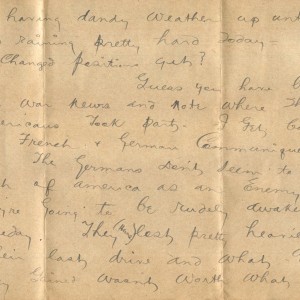 having dandy weather up unt
s raining pretty hard today -
Changed position yet?
Guess you have b
war news and note where Th
ericans took part. I get b
French & German Communiqu
The Germans don't seem to
of america as an Enemy
're going to be rudely awake
eday. They (Huns) lost pretty heavie
eir last drive and what
gained wasn't worth what